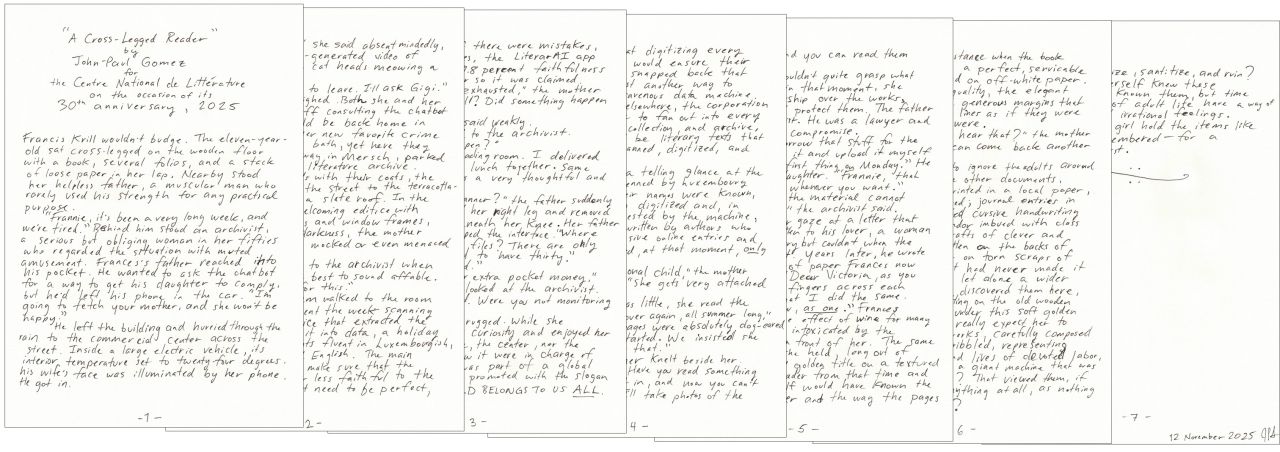 "A Cross-Legged Reader"
by
John-Paul Gomez
for
the Centre National de Littérature
on the occasion of its
30th anniversary, 2025
Francis Krill wouldn't budge. The eleven-year-
old sat cross-legged on the wooden floor
with a book, several folios, and a stack
of loose paper in her lap. Nearby stood
her helpless father, a muscular man who
rarely used his strength for any practical
purpose.
"Frannie, it's been a very long week, and
we're tired." Behind him stood an archivist,
a serious but obliging woman in her fifties
who regarded the situation with muted
amusement. Frances's father reached into
his pocket. He wanted to ask the chatbot
for a way to get his daughter to comply,
but he'd left his phone in the car. "I'm
going to fetch your mother, and she won't be
happy."
He left the building and hurried through the
rain to the commercial center across the
street. Inside a large electric vehicle, its
interior temperature set to twenty-four degrees,
his wife's face was illuminated by her phone.
He got in.
-1-
she said absentmindedly,
-generated video of
cat heads meowing a
to leave. I'll ask Gigi."
ghed. Both she and her
ff consulting the chatbot
d be back home in
er new favorite crime
bath, yet here they
way, in Mersch, parked
literature archive
s with their coats, the
the street to the terracotta-
a slate roof. In the
elcoming edifice with
and window frames,
darkness, the mother
mocked or even menaced
to the archivist when
best to sound affable.
or this."
m walked to the room
ent the week scanning
ice that extracted the
it into data, a holiday
fluent in Luxembourgish,
English. The main
make sure that the
less faithful to the
t need to be perfect,
2-
there were mistakes,
s, the LiterarAI app
7.8 percent faithfulness
so it was claimed.
exhausted," the mother
l? Did something happen
said weakly.
to the archivist.
pen?"
ading room. I delivered
lunch together. Same
a very thoughtful and
nner?" the father suddenly
her right leg and removed
neath her knee. Her father
ped the interface. "Where
files? There are only
d to have thirty."
d."
extra pocket money."
ooked at the archivist.
Were you not monitoring
rugged. While she
curiosity and enjoyed her
the center, nor the
w it were in charge of
was part of a global
promoted with the slogan
D BELONGS TO US ALL.
3-
at digitizing every
would ensure their
snapped back that
st another way to
avenous data machine.
elsewhere, the corporation
to fan out into every
collection, and archive,
be literary texts that
anned, digitized, and
a telling glance at the
enned by Luxembourg
ir names were known,
digitized and, in
ested by the machine,
written by authors who
sive online entries and,
d, at that moment, only
onal child," the mother
"She gets very attached
as little, she read the
ver again, all summer long."
ages were absolutely dog-eared
tarted. We insisted she
that."
er knelt beside her.
Have you read something
in, and now you can't
ll take photos of the
4-
d you can read them
uldn't quite grasp what
n that moment, she
ship over the works,
protect them. The father
t. He was a lawyer and
compromise.
rrow that stuff for the
it and upload it myself
first thing on Monday." He
aughter. "Frannie, that
wherever you want."
the material cannot
" the archivist said.
gaze at a letter that
n to his lover, a woman
y but couldn't when the
l years later, he wrote
of paper Frances now
Dear Victoria, as you
fingers across each
at I did the same.
, as one." Frances
e effect of wine for many
intoxicated by the
front of her. The same
he held, long out of
golden title on a textured
ader from that time and
lf would have known the
er and the way the pages
-5-
stance when the book
a perfect, servicable
d on off-white paper,
quality, the elegant
generous margins that
lines as if they were
were.
hear that?" the mother
can come back another
to ignore the adults around
other documents.
rinted in a local paper,
ed; journal entries in
d cursive handwriting
dor imbued with class
afts of clever and
tten on the backs of
on torn scraps of
t had never made it
let alone a wider
discovered them here,
ting on the old wooden
under this soft golden
really expect her to
orks. Carefully composed
ibbled, representing
d lives of elevated labor,
a giant machine that was
? That viewed them, if
ything at all, as nothing
?
6-
ize, sanitize, and ruin?
erself knew these
known them, but time
of adult life have a way of
irrational feelings.
girl hold the items like
embered — for a
st.
-7-
12 November 2025